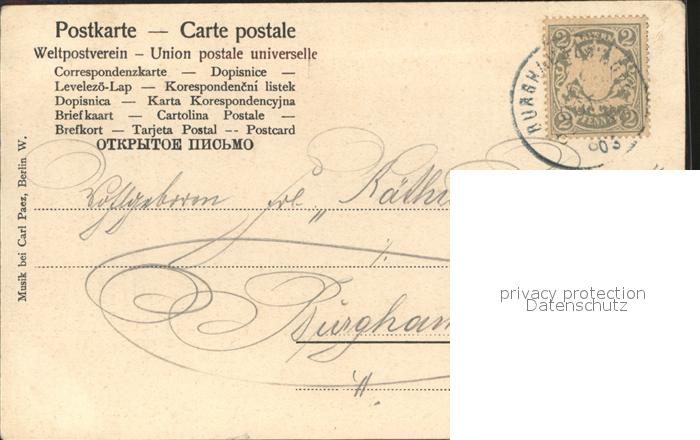 Postkarte — Carte postale
Weltpostverein – Union postale universelle
Correspondenzkarte — Dopisnice —
Levelező-Lap — Korespondenční listek
Dopisnica — Karta Korespondencyjna
Briefkaart — Cartolina Postale —
Brefkort — Tarjeta Postal -- Postcard
ОТКРЫТОЕ ПИСЬМО
2 2
2 2
BURGHA
Musik bei Carl Paez, Berlin W.
Frl. "Käthi
Burgham
privacy protection
Datenschutz